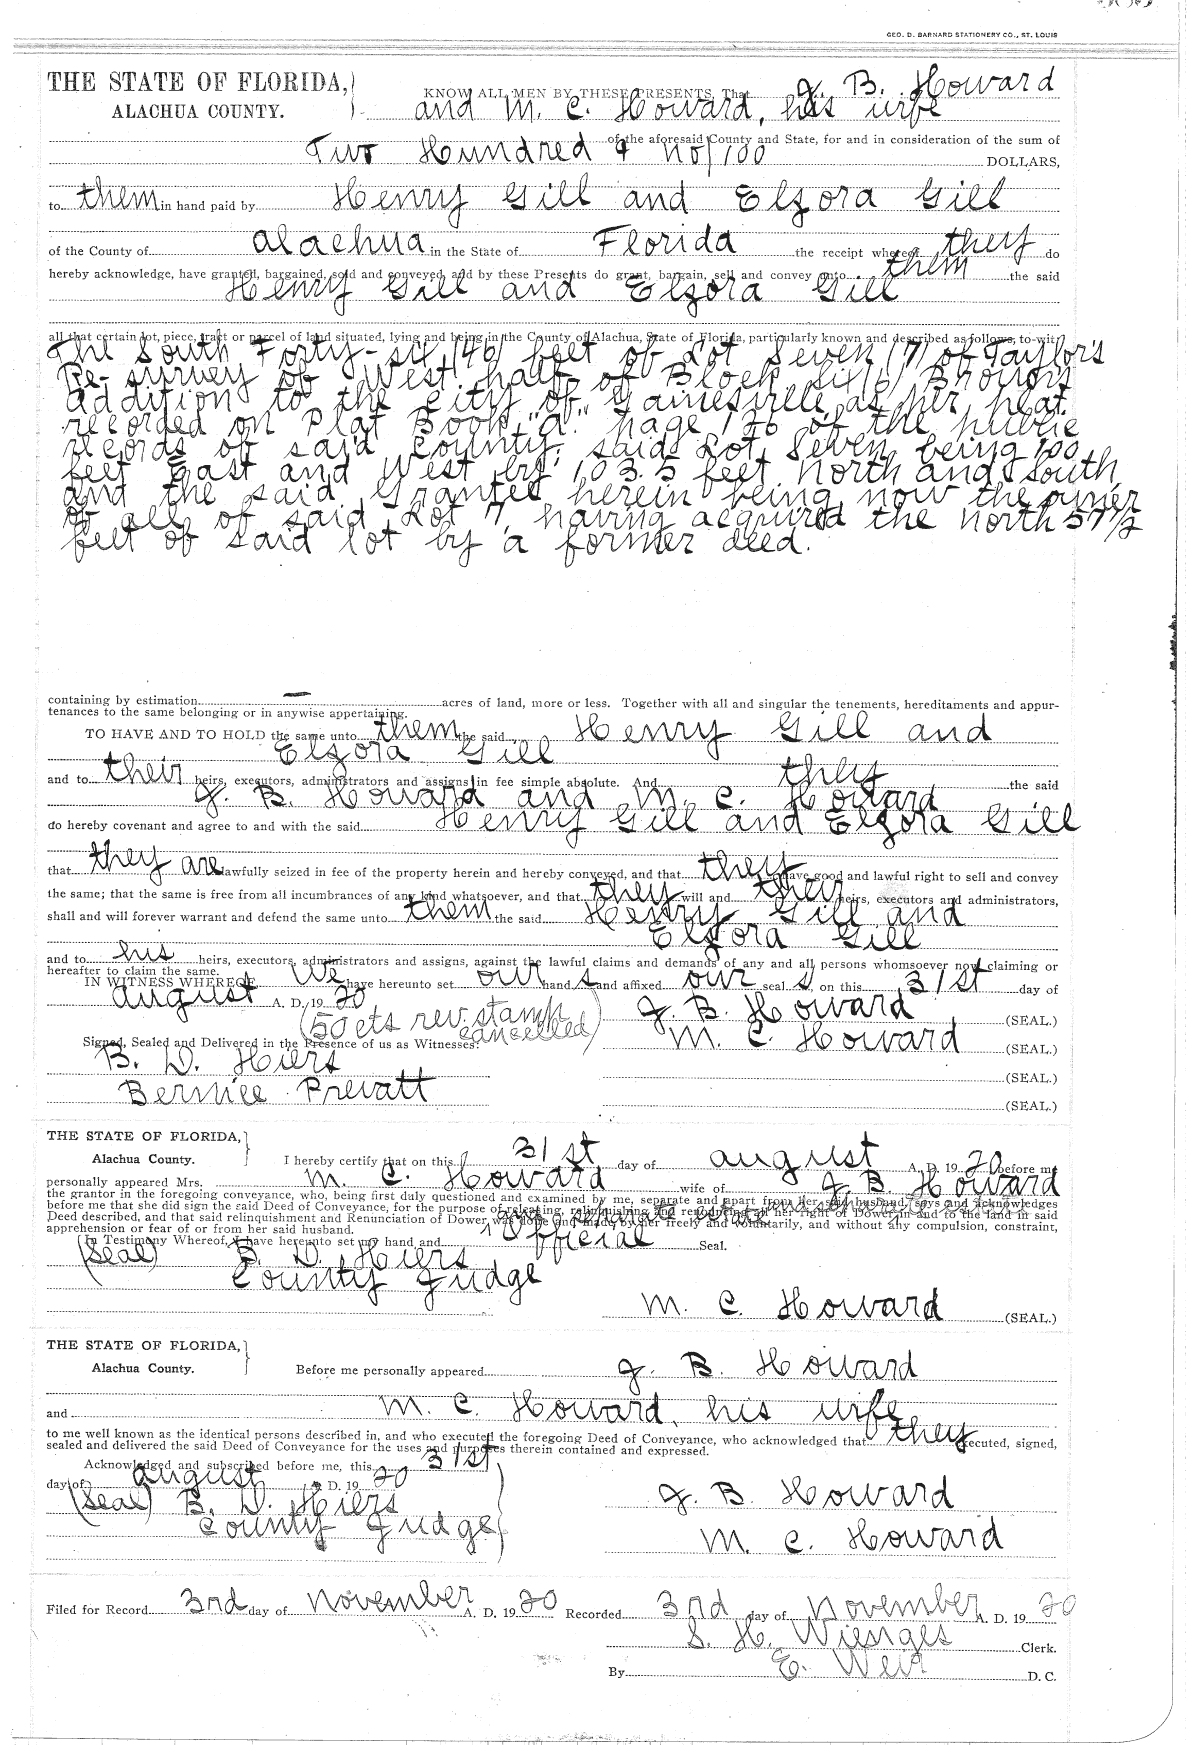 GEO. D. BARNARD STATIONERY CO., ST. LOUIS
THE STATE OF FLORIDA,
ALACHUA COUNTY.
KNOW ALL MEN BY THESE PRESENTS, That J. B. Howard
and M. C. Howard, his wife
of the aforesaid County and State, for and in consideration of the sum of
Two Hundred & no/100 DOLLARS,
to them in hand paid by Henry Gill and Elzora Gill
of the County of Alachua in the State of Florida the receipt whereof they do
hereby acknowledge, have granted, bargained, sold and conveyed, and by these Presents do grant, bargain, sell and convey unto them the said
Henry Gill and Elzora Gill
all that certain lot, piece, tract or parcel of land situated, lying and being in the County of Alachua, State of Florida, particularly known and described as follows, to-wit:
The South Forty-six (46) feet of Lot Seven (7) of Taylor's
Re-survey of West half of Block six (6) Brown's
addition to the City of Gainesville as per plat
recorded on Plat Book "A" page 126 of the public
records of said county, said Lot Seven being 100
feet East and West by 103.5 feet North and South
and the said Grantee herein being now the owner
of all of said Lot 7, having acquired the north 57 1/2
feet of said lot by a former deed.
containing by estimation — acres of land, more or less. Together with all and singular the tenements, hereditaments and appur-
tenances to the same belonging or in anywise appertaining.
TO HAVE AND TO HOLD the same unto them the said Henry Gill and
Elzora Gill
and to their heirs, executors, administrators and assigns in fee simple absolute. And they the said
J. B. Howard and M. C. Howard
do hereby covenant and agree to and with the said Henry Gill and Elzora Gill
that they are lawfully seized in fee of the property herein and hereby conveyed, and that they have good and lawful right to sell and convey
the same; that the same is free from all incumbrances of any kind whatsoever, and that they will and their heirs, executors and administrators,
shall and will forever warrant and defend the same unto them the said Henry Gill and
Elzora Gill
and to his heirs, executors, administrators and assigns, against the lawful claims and demands of any and all persons whomsoever now claiming or
hereafter to claim the same.
IN WITNESS WHEREOF, We have hereunto set our hand s and affixed our seal s, on this 31st day of
August A. D. 1920
(50 cts rev. stamp cancelled)
J. B. Howard (SEAL.)
M. C. Howard (SEAL.)
Signed, Sealed and Delivered in the Presence of us as Witnesses:
B. D. Hiers (SEAL.)
Bernice Prevatt (SEAL.)
THE STATE OF FLORIDA,
Alachua County.
I hereby certify that on this 31st day of August A. D. 1920 before me
personally appeared Mrs. M. C. Howard wife of J. B. Howard
the grantor in the foregoing conveyance, who, being first duly questioned and examined by me, separate and apart from her said husband, says and acknowledges
before me that she did sign the said Deed of Conveyance, for the purpose of releasing, relinquishing and renouncing all her right of Dower in and to the land in said
Deed described, and that said relinquishment and Renunciation of Dower, was done and made by her freely and voluntarily, and without any compulsion, constraint,
apprehension or fear of or from her said husband.
In Testimony Whereof, I have hereunto set my hand and official Seal.
(Seal) B. D. Hiers
County Judge
M. C. Howard (SEAL.)
THE STATE OF FLORIDA,
Alachua County.
Before me personally appeared J. B. Howard
and M. C. Howard, his wife
to me well known as the identical persons described in, and who executed the foregoing Deed of Conveyance, who acknowledged that they executed, signed,
sealed and delivered the said Deed of Conveyance for the uses and purposes therein contained and expressed.
Acknowledged and subscribed before me, this 31st
day of August A. D. 1920
(Seal) B. D. Hiers
County Judge
J. B. Howard
M. C. Howard
Filed for Record 3rd day of November A. D. 1920 Recorded 3rd day of November A. D. 1920
S. H. Wienges Clerk.
By E. Weir D. C.